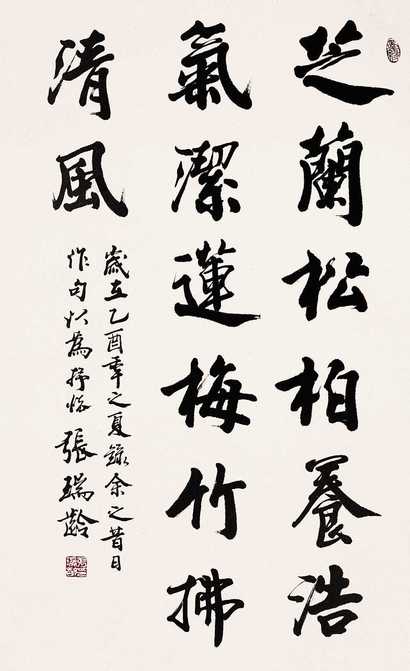 芝蘭松柏養浩
氣潔蓮梅竹拂
清風
歲在乙酉年之夏錄余之昔日
作句以為抒懷 張瑞齡